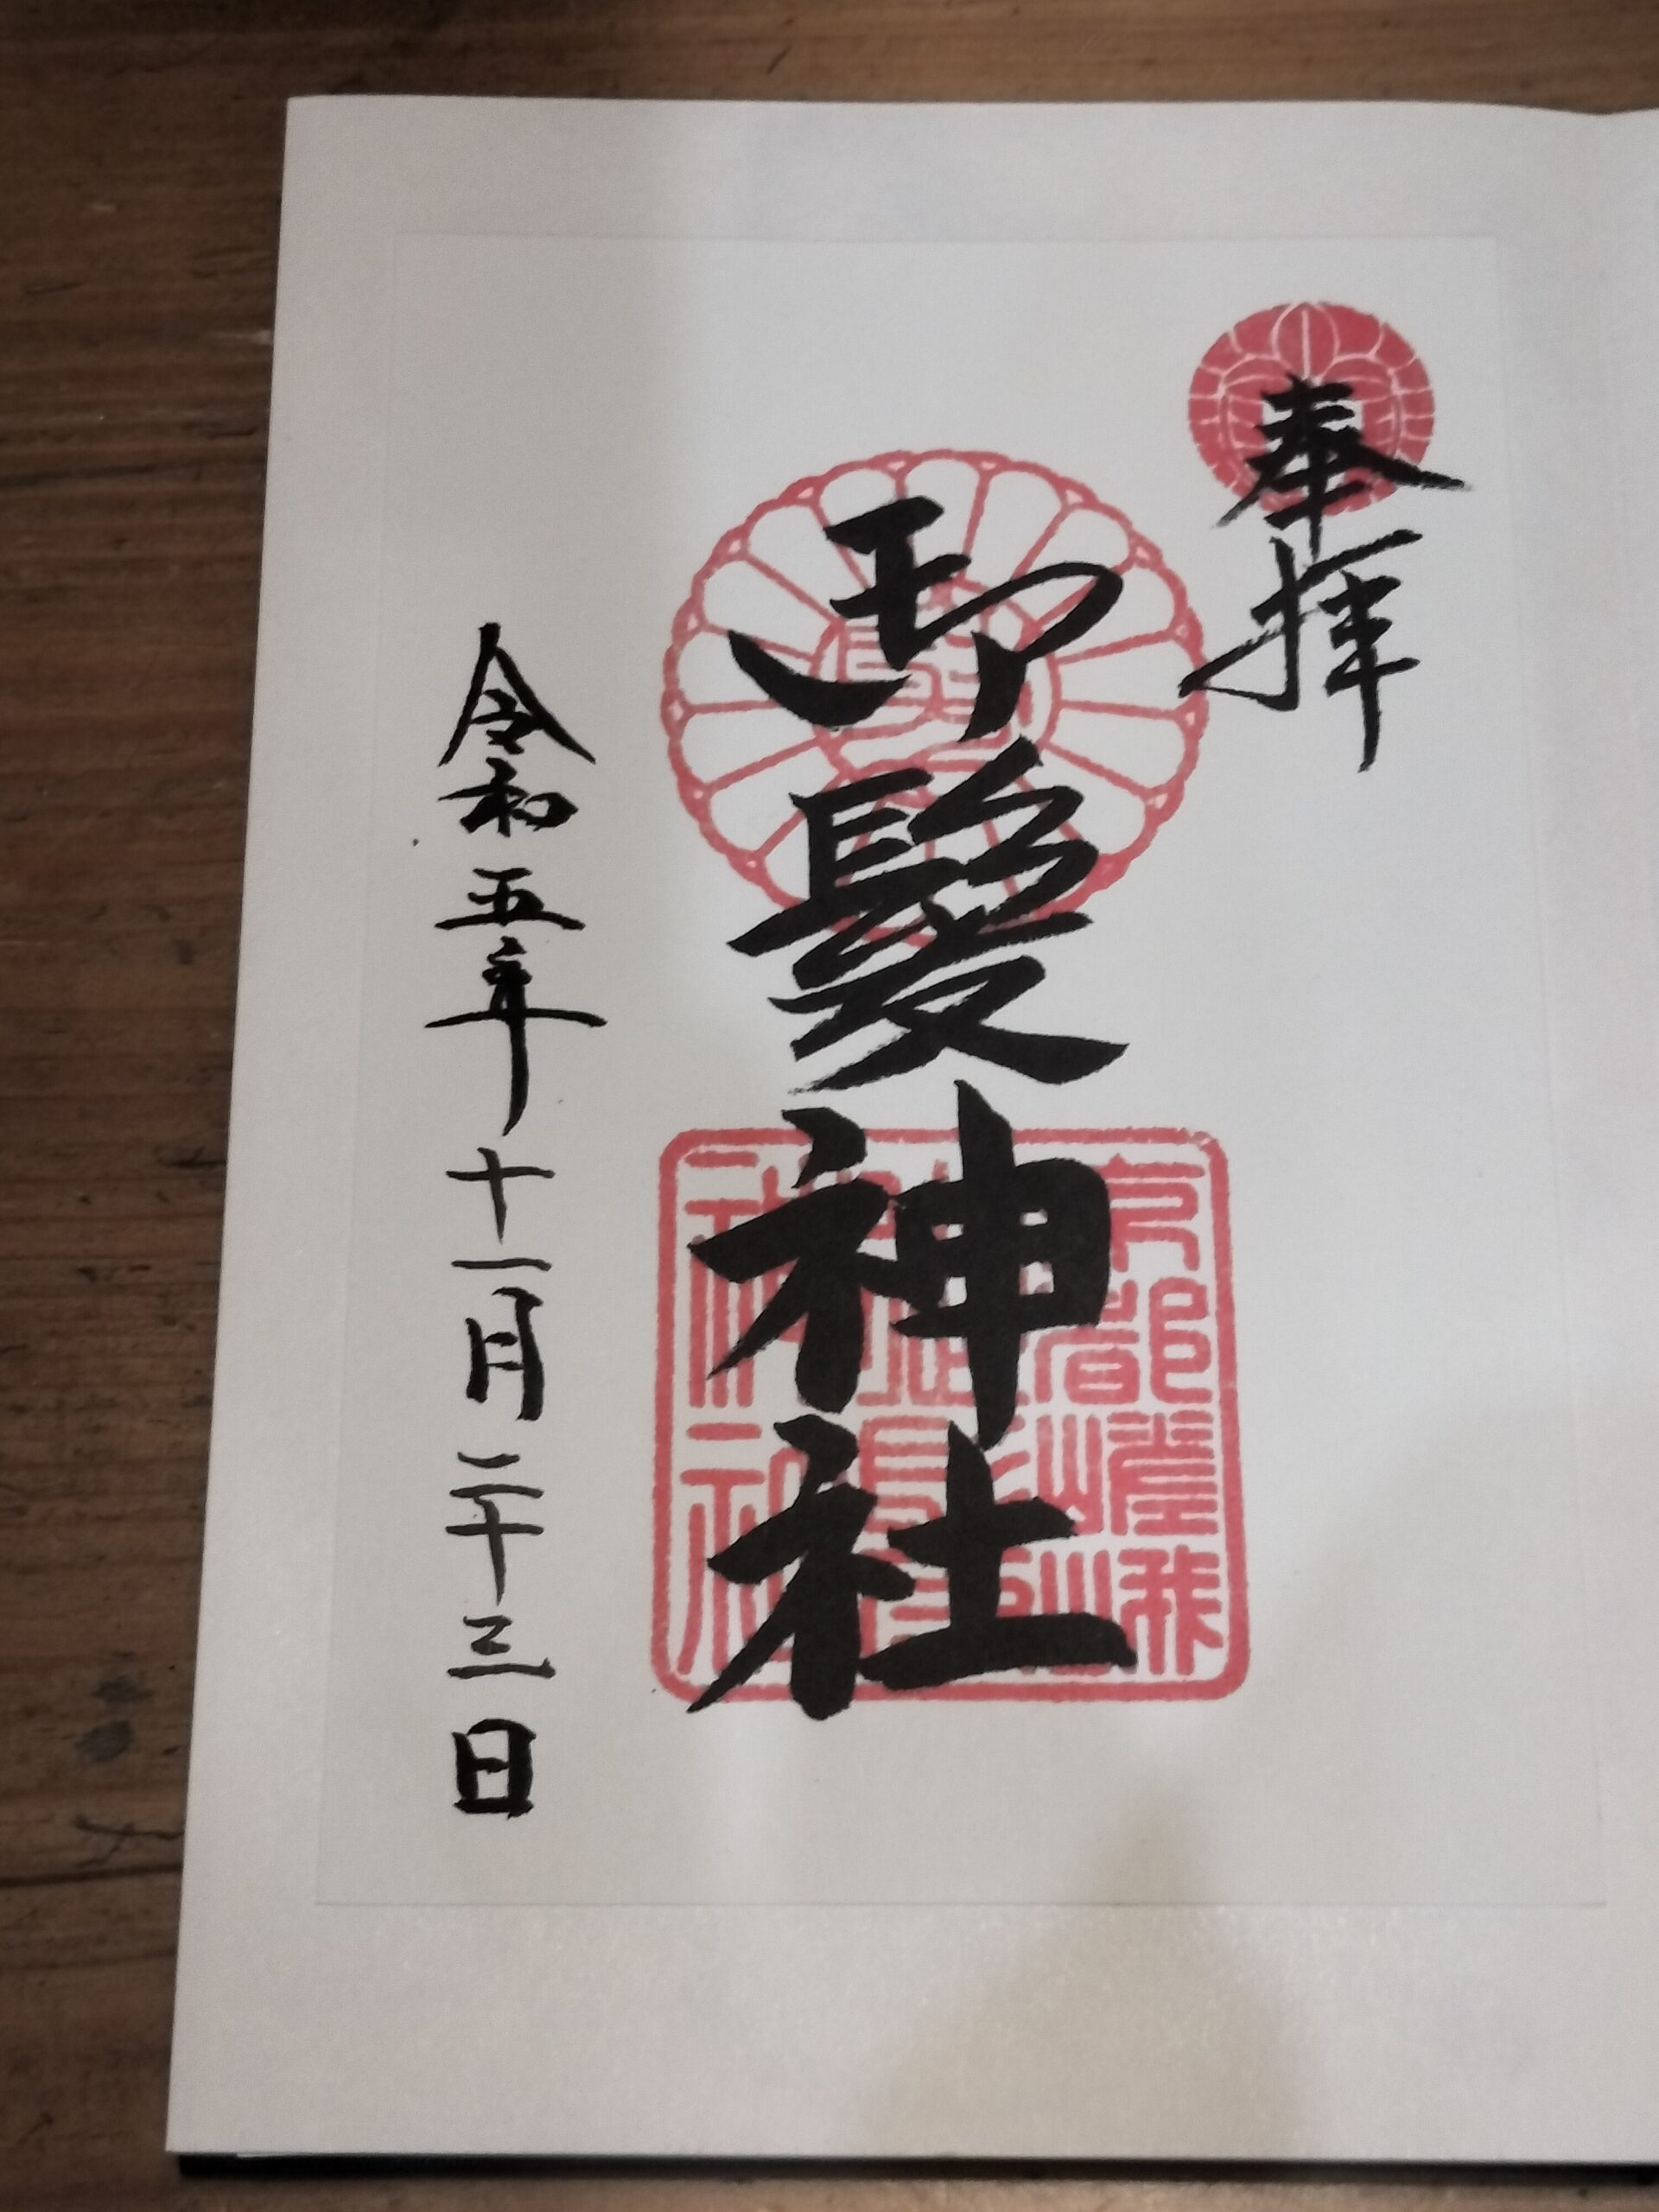 奉拝
御髪神社
京都嵯峨
令和五年十一月二十三日